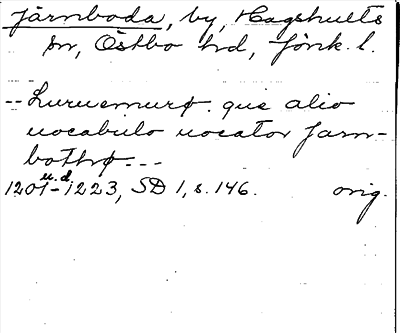 Järnboda, by, Hagshults
sn, Östbo hd, Jönk. l.
-- Luruemurø. que alio
uocabulo uocator Jarn-
bothø---
u.d.
1201-1223, SD 1, s. 146. orig.